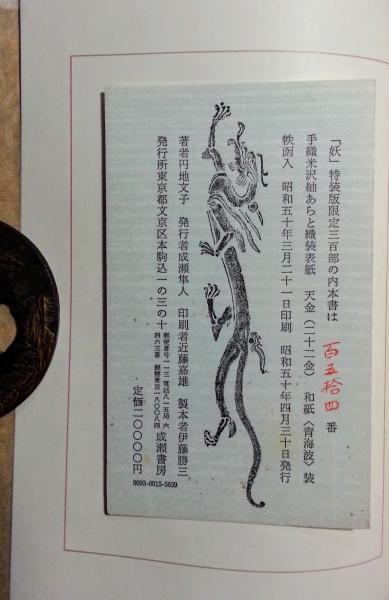 「妖」特装版限定三百部の内本書は 百五拾四 番
手織米沢紬あらと織装表紙 天金(二十二金) 和紙〈青海波〉装
帙函入 昭和五十年三月二十一日印刷 昭和五十年四月三十日発行
著者円地文子 発行者成瀬隼人 印刷者近藤嘉雄 製本者伊藤勝三
発行所東京都文京区本駒込一の三の十 郵便番号一一三 電話八一五局六
四六三番 振替東京一八〇〇八四 成瀬書房
定価二〇〇〇〇円
0093-0015-5639